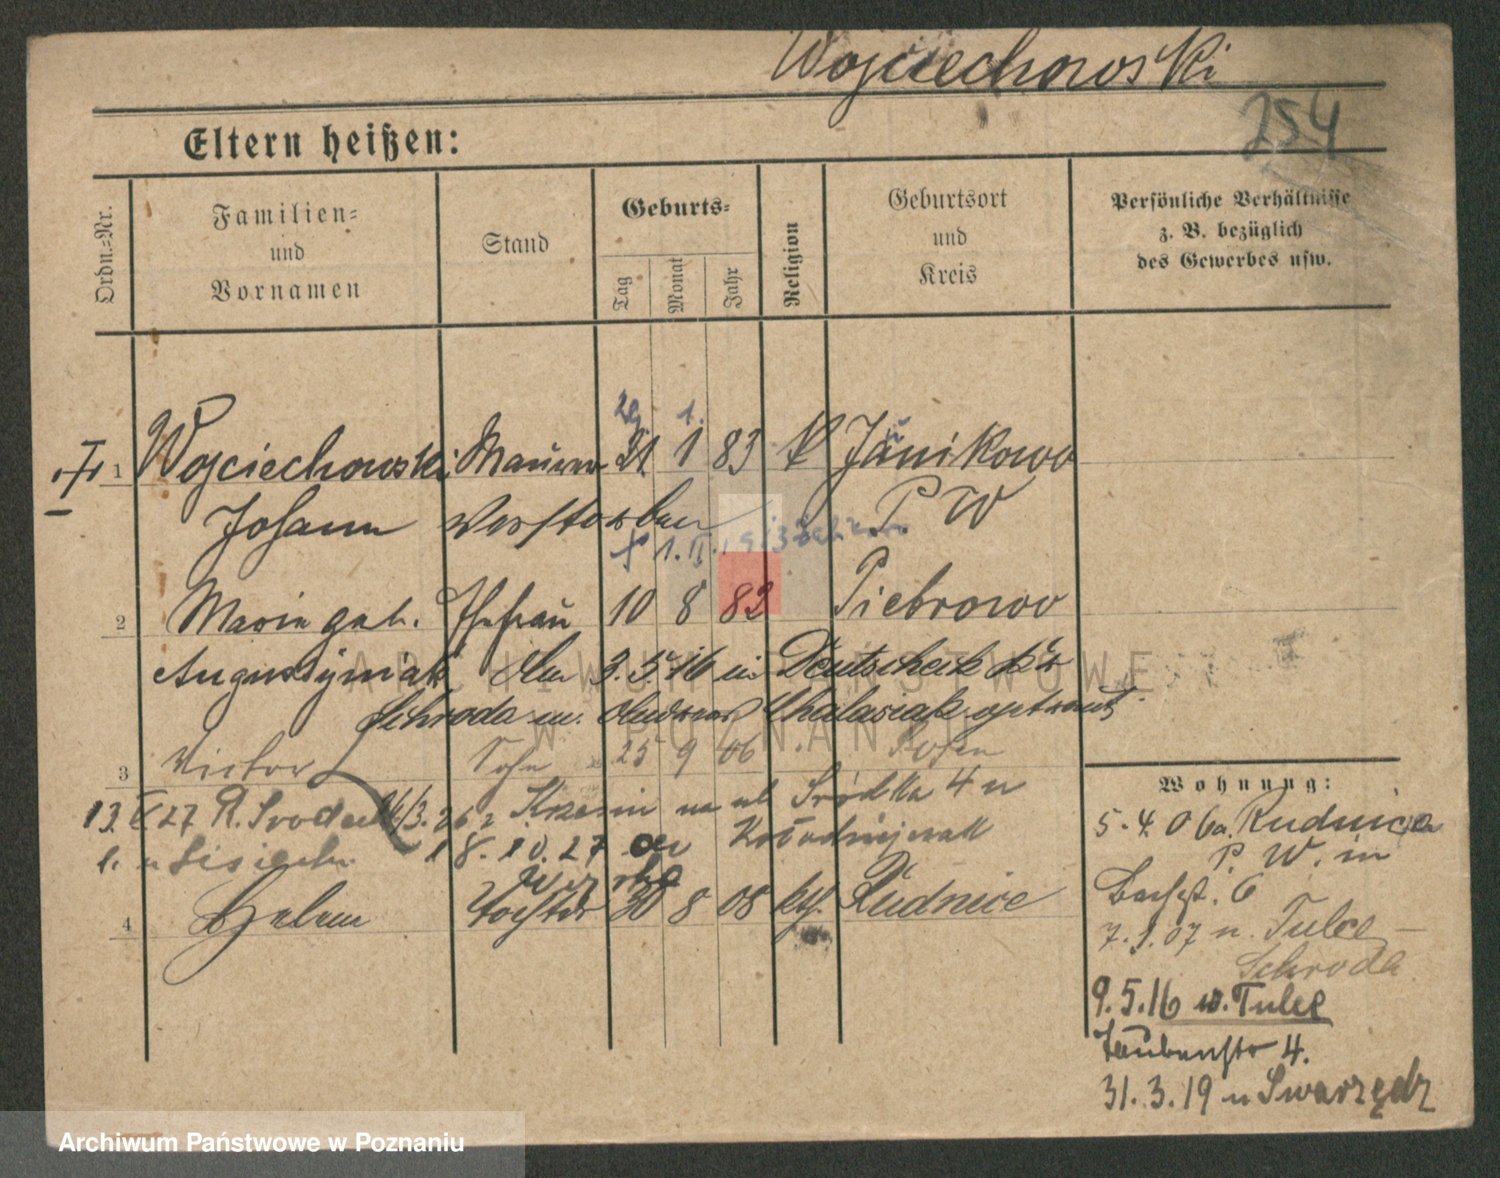 Wojciechowski
254
Eltern heißen:
Ordn.=Nr.
Familien=
und
Vornamen
Stand
Geburts=
Tag
Monat
Jahr
Religion
Geburtsort
und
Kreis
Persönliche Verhältnisse
z. B. bezüglich
des Gewerbes usw.
29 1.
1 Wojciechowski Maurer 21 1 83 K Janikowo
Johann verstorben P W
+ 1. II.
2 Marie geb. Ehefrau 10 8 82 Piebrowo
Augustyniak Am 3.5.16 in Deutscheck Kr
Schroda m. Andreas Chalasiak getraut
3 Victor Sohn 25 9 06 Posen
13 27 R. Sroda 26 z Krzesin na ul Sródka 4 u
18.10.27
4 Helene Tochter 30 8 08 kth. Rudnice
Wohnung:
5.4.06 a. Rudnice
P. W. in
Bachst. 6
7.1.07 n. Tulce
Schroda
9.5.16 v. Tulce
Taubenstr 4.
31.3.19 n Swarzędz
ARCHIWUM PAŃSTWOWE
W POZNANIU
Archiwum Państwowe w Poznaniu